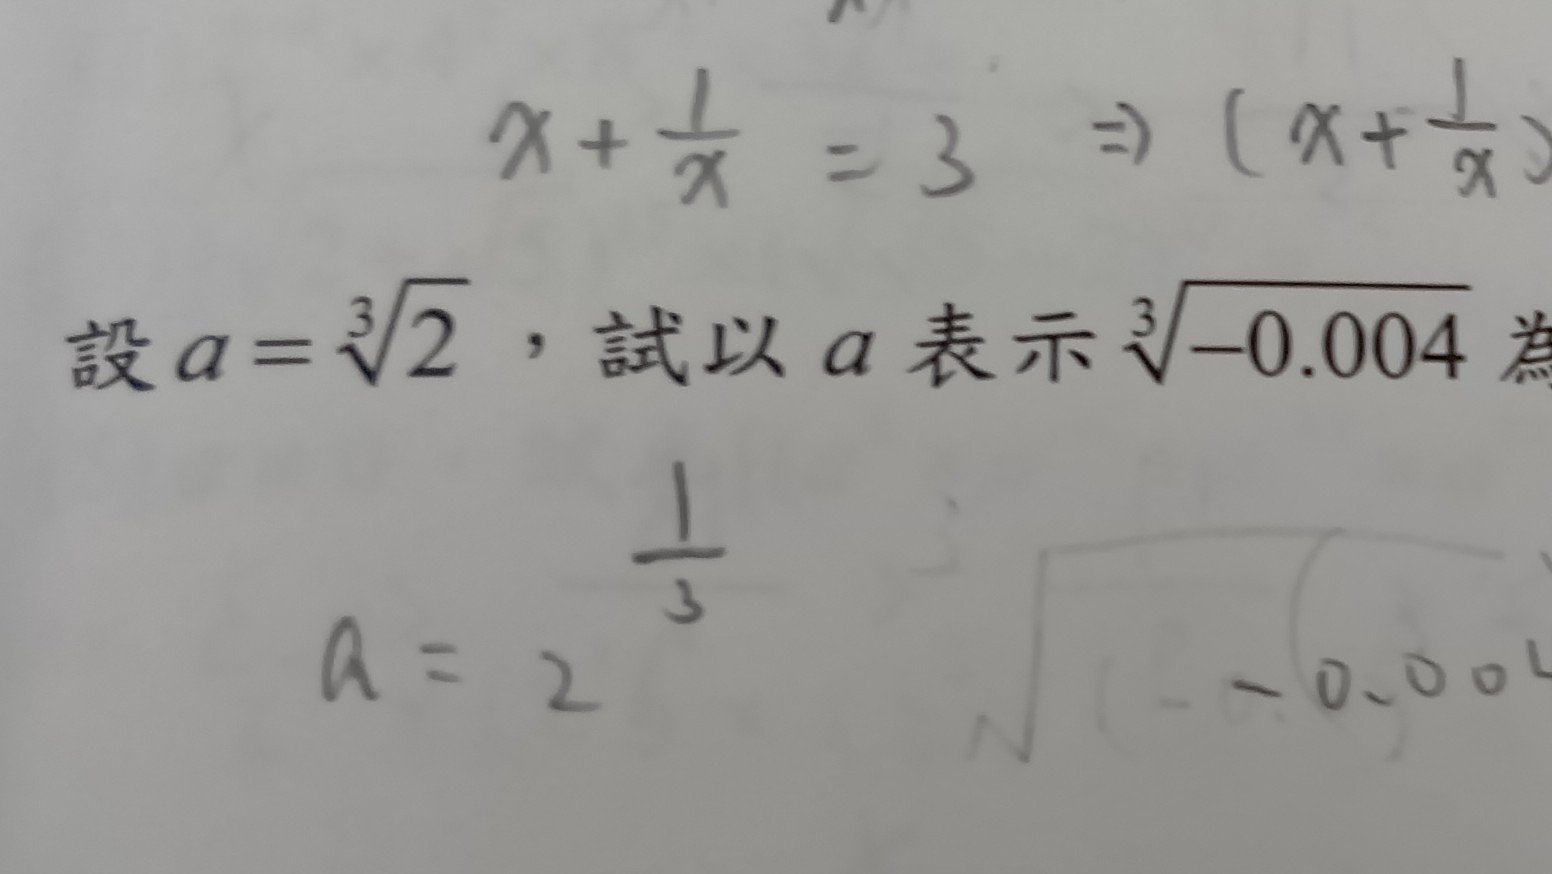 x + 1/x = 3 ⇒ (x + 1/x)
設 a = ∛2 ，試以 a 表示 ∛-0.004 為
a = 2^(1/3) √-0.004